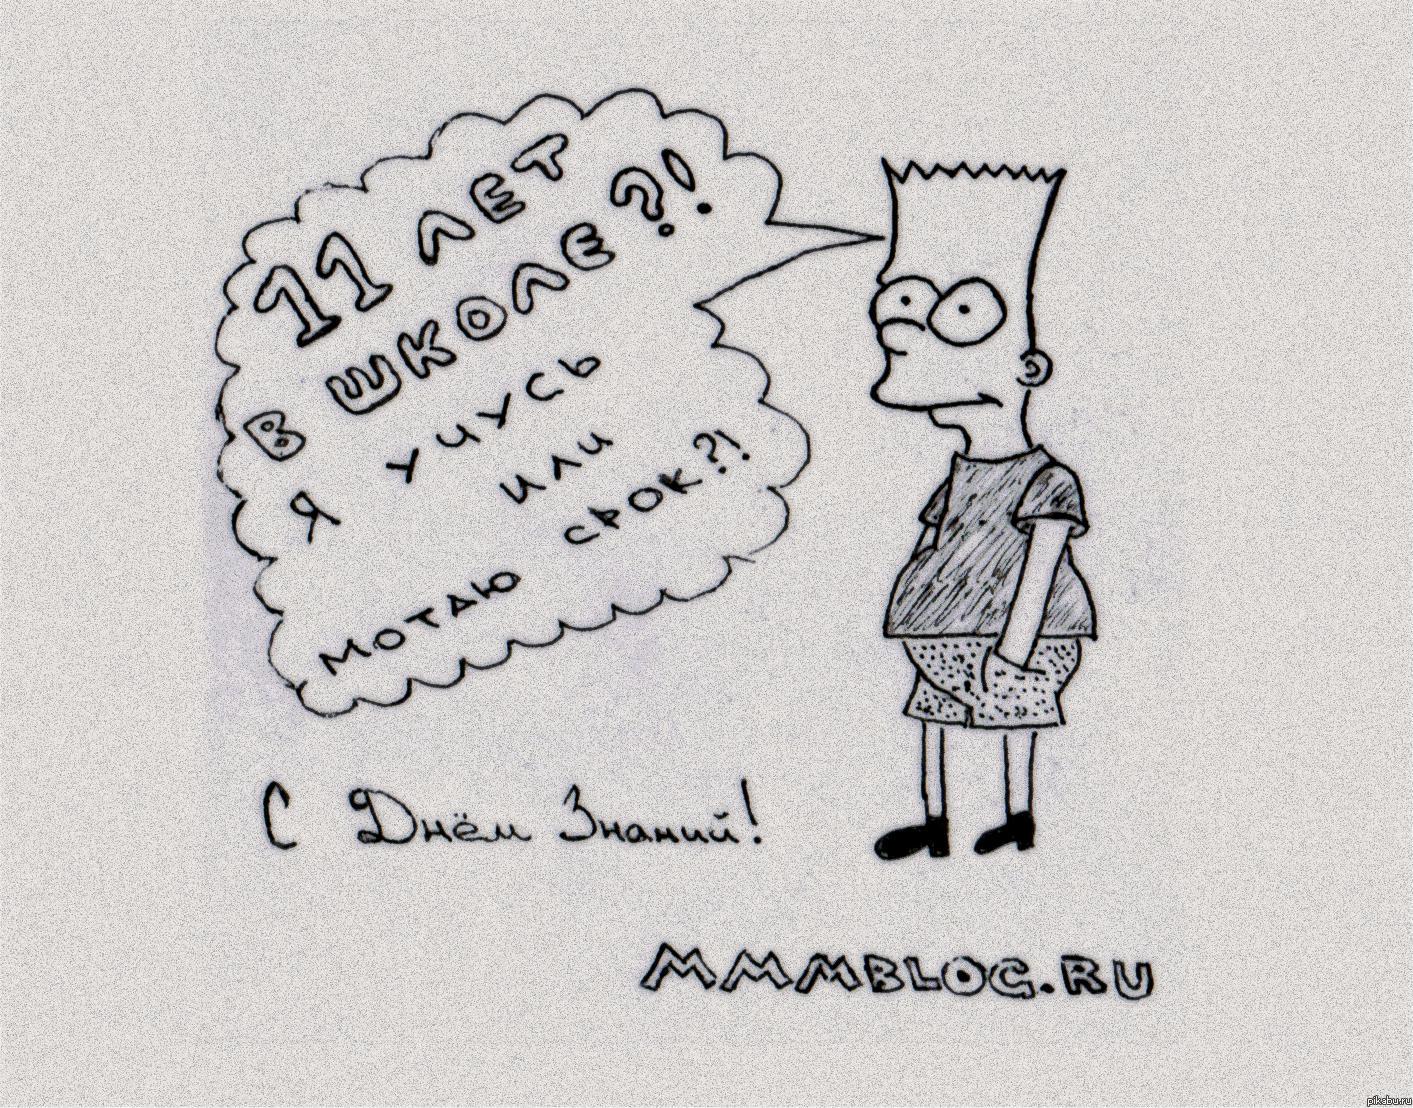 11 ЛЕТ
В ШКОЛЕ?!
Я УЧУСЬ
ИЛИ
МОТАЮ СРОК?!
С Днём Знаний!
MMMBLOG.RU
pikabu.ru